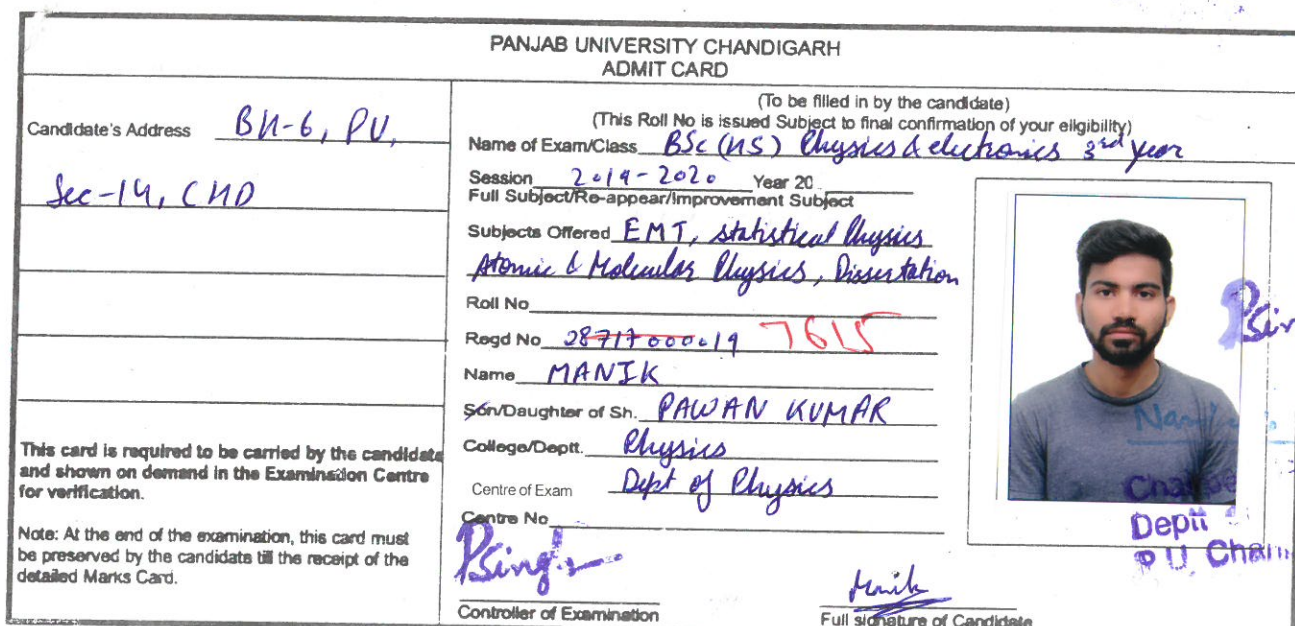 PANJAB UNIVERSITY CHANDIGARH
ADMIT CARD
Candidate's Address BH-6, PU,
Sec-14, CHD
This card is required to be carried by the candidate
and shown on demand in the Examination Centre
for verification.
Note: At the end of the examination, this card must
be preserved by the candidate till the receipt of the
detailed Marks Card.
(To be filled in by the candidate)
(This Roll No is issued Subject to final confirmation of your eligibility)
Name of Exam/Class BSc (HS) Physics & electronics 3rd year
Session 2019-2020 Year 20
Full Subject/Re-appear/Improvement Subject
Subjects Offered EMT, statistical Physics
Atomic & Molecular Physics, Dissertation
Roll No
Regd No 28717000019 7615
Name MANIK
Son/Daughter of Sh. PAWAN KUMAR
College/Deptt. Physics
Centre of Exam Dept of Physics
Centre No
PSingh
Controller of Examination
Manik
Full signature of Candidate
Deptt
P.U. Chan